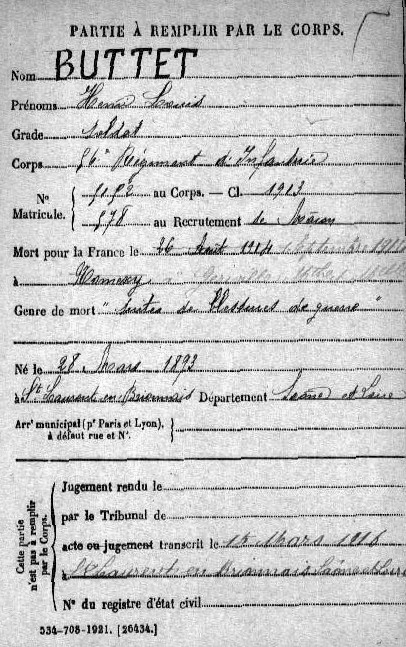 PARTIE À REMPLIR PAR LE CORPS.
Nom BUTTET
Prénoms Henri Louis
Grade soldat
Corps 56e Régiment d'Infanterie
No Matricule. { au Corps. — Cl. 1913
578 au Recrutement de Mâcon
Mort pour la France le 26 Août 1914
à
Genre de mort "Suites de blessures de guerre"
Né le 28 Mars 1893
à St Laurent en Brionnais Département Saône et Loire
Arrt municipal (pr Paris et Lyon), à défaut rue et No.
Cette partie n'est pas à remplir par le Corps.
Jugement rendu le
par le Tribunal de
acte ou jugement transcrit le 15 Mars 1916
à St Laurent en Brionnais Saône et Loire
No du registre d'état civil
534-708-1921. [26434.]